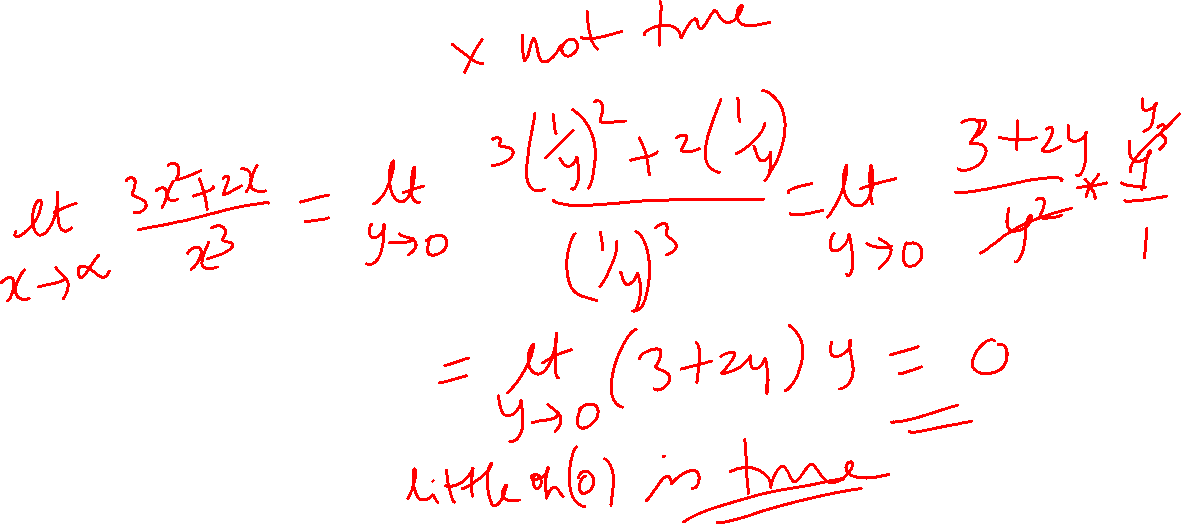 × not true
lt x→∝ 3x²+2x / x³ = lt y→0 3(1/y)² + 2(1/y) / (1/y)³ = lt y→0 3+2y / y² * y³ / 1 y
= lt y→0 (3+2y) y = 0
little oh(0) is true